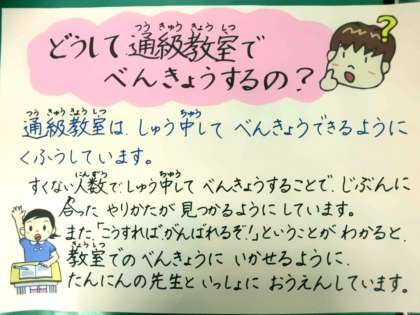 どうして通級教室で
べんきょうするの?
通級教室は、しゅう中して べんきょうできるように
くふうしています。
すくない人数で、しゅう中して べんきょうすることで、じぶんに
合った やりかたが 見つかるようにしています。
また、「こうすればがんばれるぞ!」ということが わかると、
教室での べんきょうに いかせるように、
たんにんの先生と いっしょに おうえんしています。